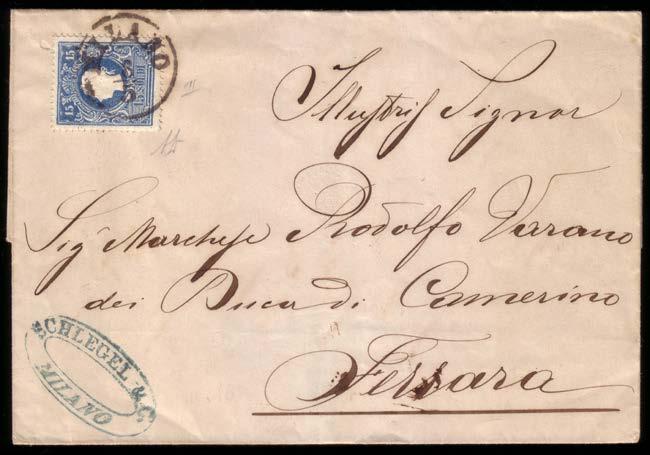 MILANO
15 15
Illustris Signor
Sigr Marchese Rodolfo Varano
dei Duca di Camerino
Ferrara
SCHLEGEL & C.
MILANO